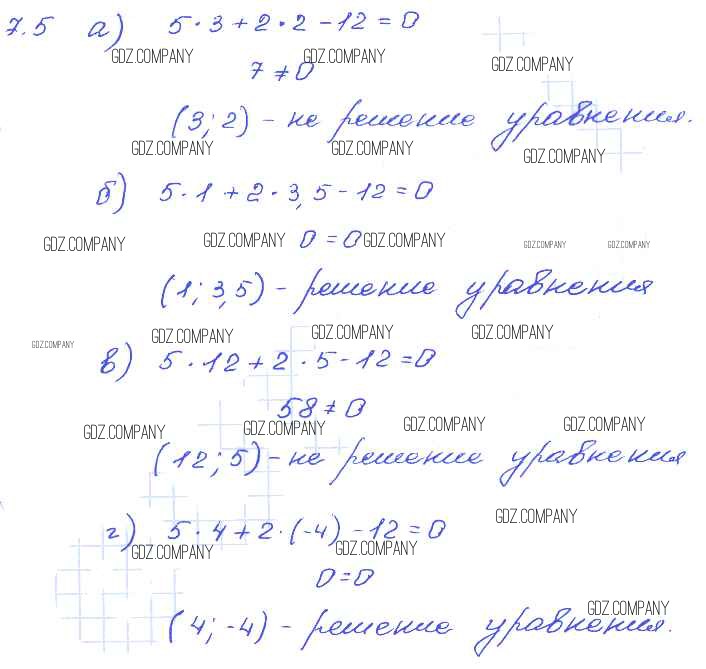 7.5 а) 5·3+2·2-12=0
GDZ.COMPANY GDZ.COMPANY GDZ.COMPANY
7≠0
(3; 2) - не решение уравнения.
GDZ.COMPANY GDZ.COMPANY GDZ.COMPANY
б) 5·1+2·3,5-12=0
GDZ.COMPANY GDZ.COMPANY 0=0 GDZ.COMPANY GDZ.COMPANY GDZ.COMPANY
(1; 3,5) - решение уравнения
GDZ.COMPANY GDZ.COMPANY GDZ.COMPANY GDZ.COMPANY
в) 5·12+2·5-12=0
58≠0
GDZ.COMPANY GDZ.COMPANY GDZ.COMPANY GDZ.COMPANY
(12; 5) - не решение уравнения
GDZ.COMPANY
г) 5·4+2·(-4)-12=0
GDZ.COMPANY GDZ.COMPANY
0=0
GDZ.COMPANY
(4; -4) - решение уравнения.